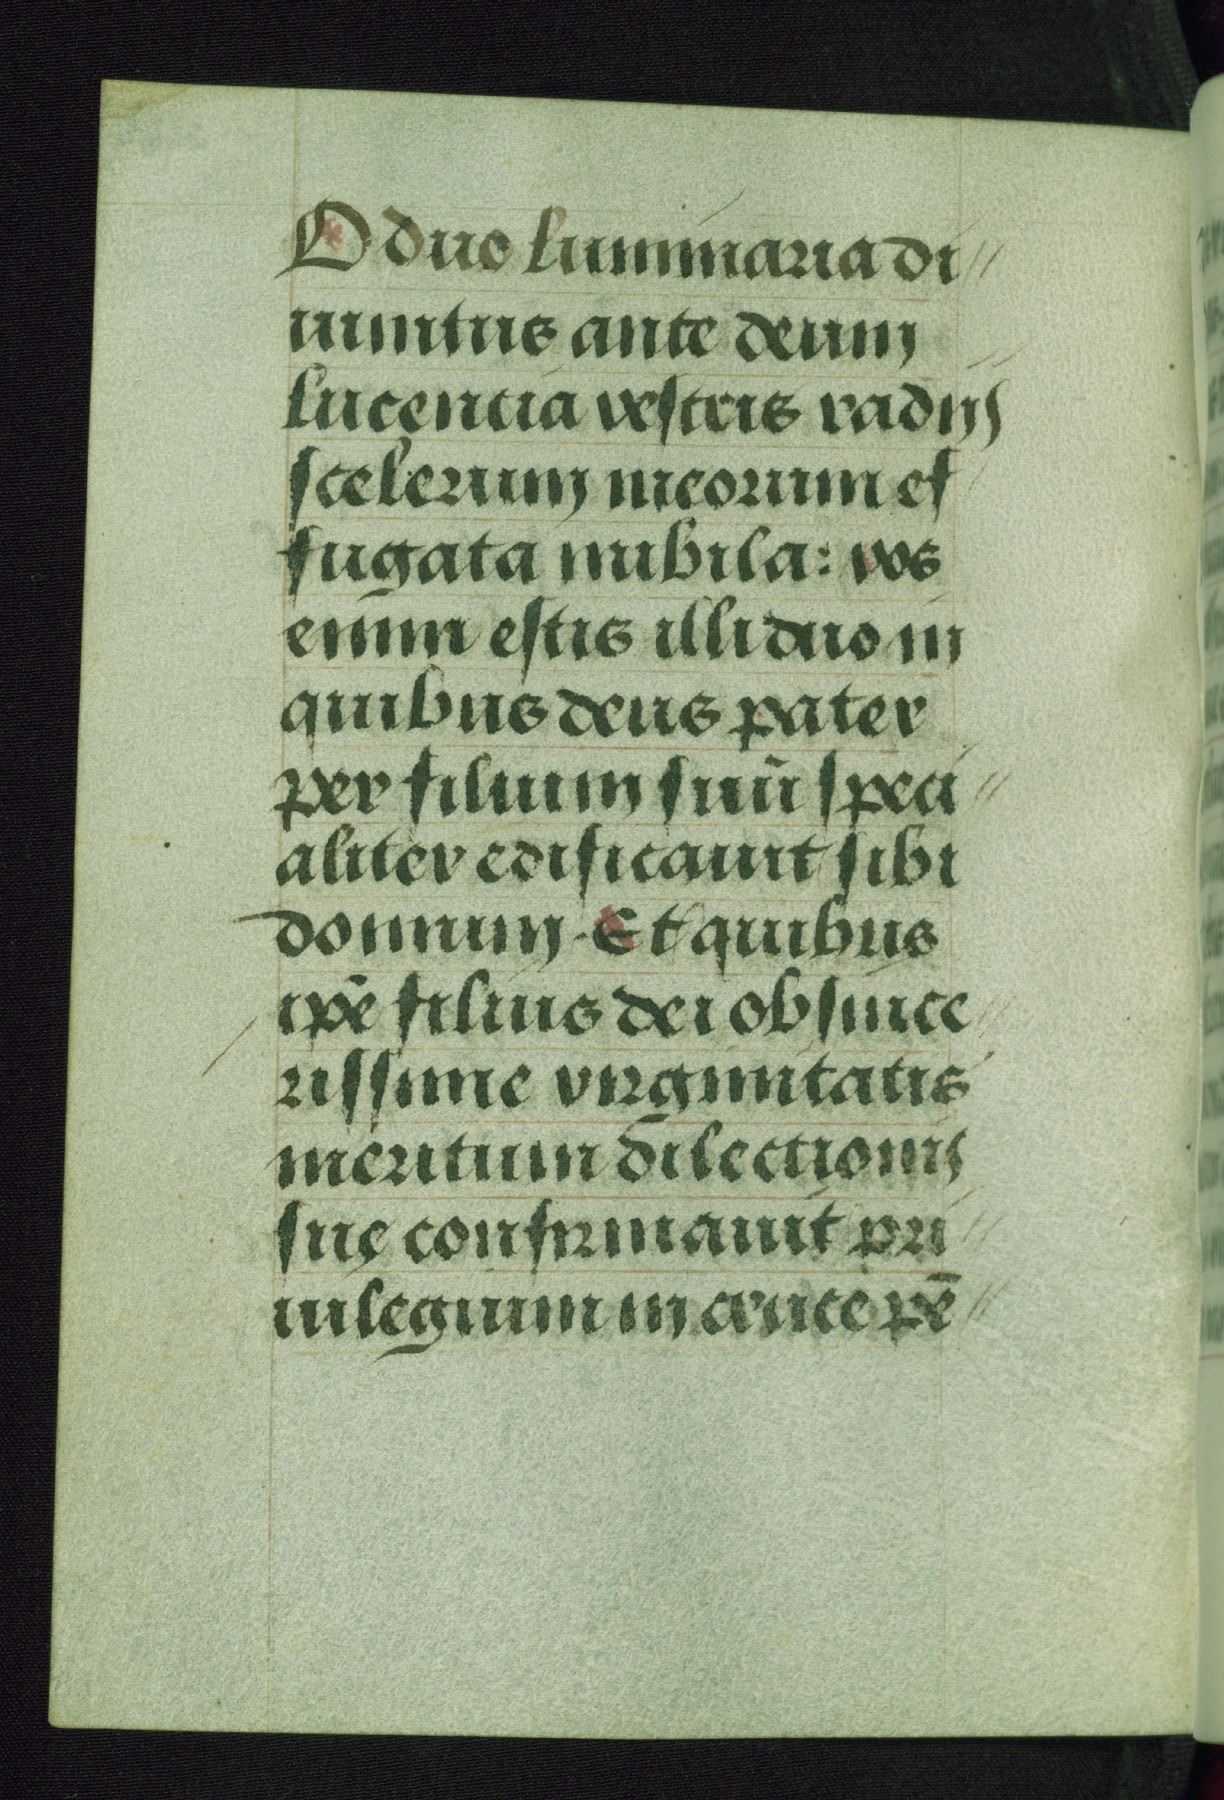 O duo luminaria di//
uinitus ante deum
lucentia vestris radijs
scelerum meorum ef
fugata nubila: vos
enim estis illi duo in
quibus deus pater
per filium suū speci//
aliter edificauit sibi
domum. Et quibus
ipē filius dei ob since
rissime virginitatis
meritum dilectionis
sue confirmauit pri//
uilegium in cruce pē//